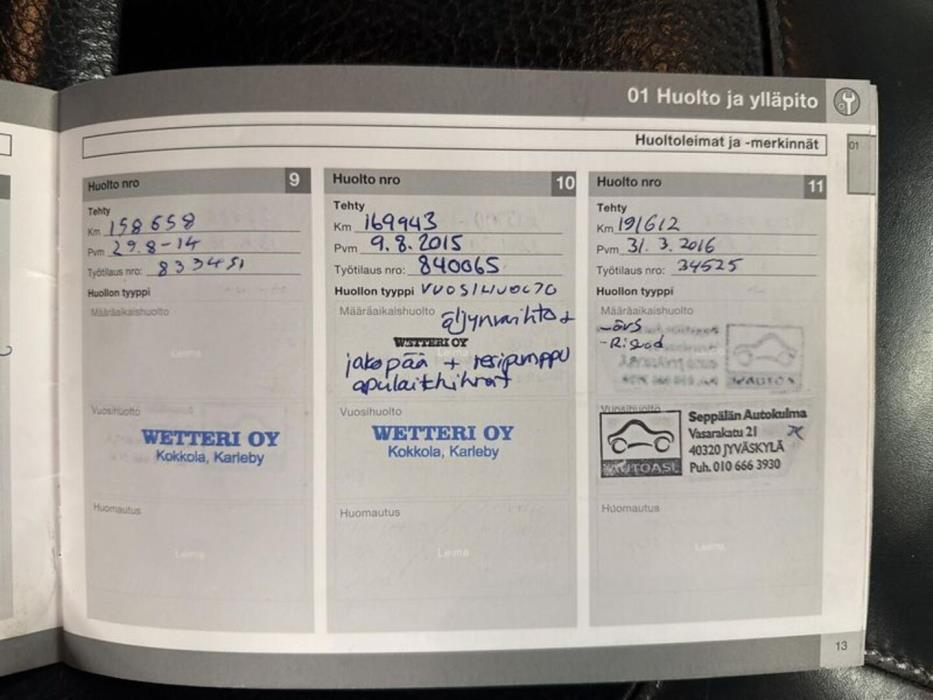 01 Huolto ja ylläpito
Huoltoleimat ja -merkinnät
01
Huolto nro 9
Tehty
Km 158658
Pvm 29.8-14
Työtilaus nro: 833451
Huollon tyyppi
Määräaikaishuolto
Leima
Vuosihuolto
WETTERI OY
Kokkola, Karleby
Huomautus
Leima
Huolto nro 10
Tehty
Km 169943
Pvm 9.8.2015
Työtilaus nro: 840065
Huollon tyyppi VUOSIHUOLTO
Määräaikaishuolto öljynvaihto +
WETTERI OY
Leima
jakopää + vesipumppu
apulaitehihnat
Vuosihuolto
WETTERI OY
Kokkola, Karleby
Huomautus
Leima
Huolto nro 11
Tehty
Km 191612
Pvm 31.3.2016
Työtilaus nro: 34525
Huollon tyyppi
Määräaikaishuolto
Vuosihuolto
AUTOASI
Seppälän Autokulma
Vasarakatu 21
40320 JYVÄSKYLÄ
Puh. 010 666 3930
Huomautus
Leima
13